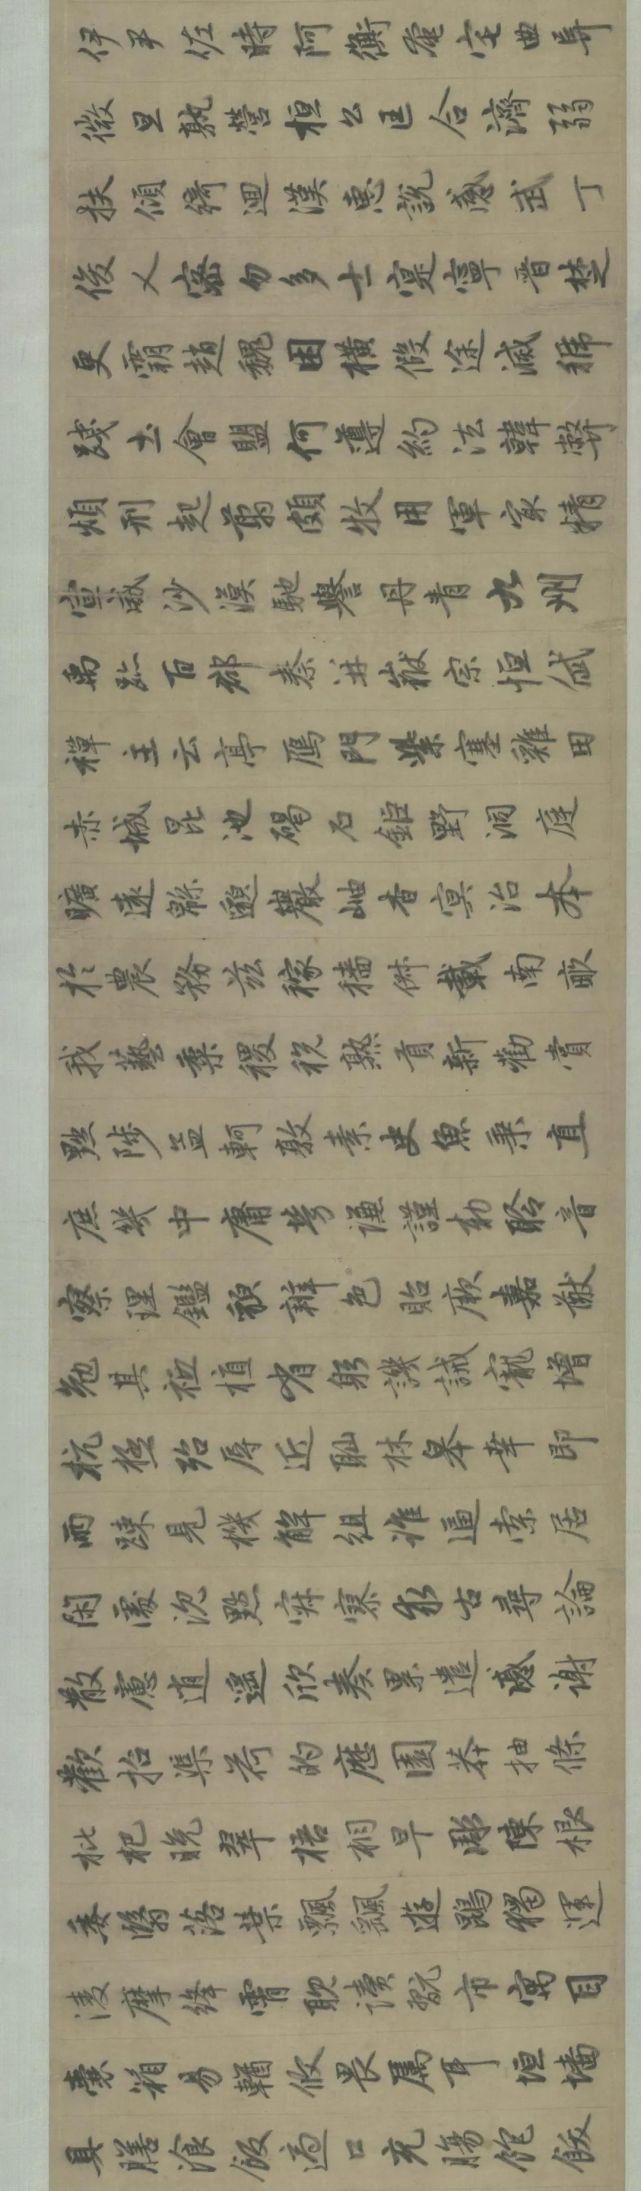 伊尹佐時阿衡奄宅曲阜
微旦孰營桓公匡合濟弱
扶傾綺迴漢惠說感武丁
俊乂密勿多士寔寧晉楚
更霸趙魏困橫假途滅虢
踐土會盟何遵約法韓弊
煩刑起翦頗牧用軍冣精
宣威沙漠馳譽丹青九州
禹跡百郡秦并嶽宗恒岱
禪主云亭雁門紫塞雞田
赤城昆池碣石鉅野洞庭
曠遠緜邈巖岫杳冥治本
於農務茲稼穡俶載南畝
我藝黍稷稅熟貢新勸賞
黜陟孟軻敦素史魚秉直
庶幾中庸勞謙謹勅聆音
察理鑑貌辨色貽厥嘉猷
勉其祗植省躬譏誡寵增
抗極殆辱近恥林皋幸即
兩疎見機解組誰逼索居
閑處沉默寂寥求古尋論
散慮逍遙欣奏累遣慼謝
歡招渠荷的歷園莽抽條
枇杷晚翠梧桐早彫陳根
委翳落葉飄颻遊鵾獨運
凌摩絳霄耽讀翫市寓目
囊箱易輶攸畏屬耳垣墻
具膳飡飯適口充腸飽飫